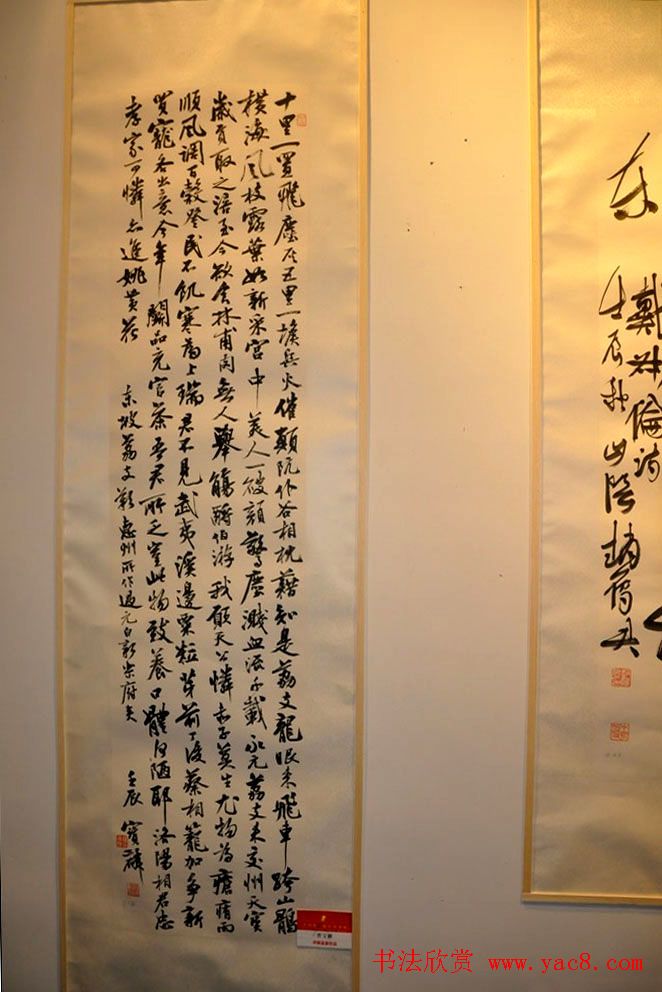 十里一置飛塵灰五里一堠兵火催顛阬仆谷相枕藉知是荔支龍眼來飛車跨山鶻
橫海風枝露葉如新采宮中美人一破顏驚塵濺血流千載永元荔支來交州天寶
歲貢取之涪至今欲食林甫肉無人舉觴酹伯游我願天公憐赤子莫生尤物為瘡痏雨
順風調百穀登民不飢寒為上瑞君不見武夷溪邊粟粒芽前丁後蔡相籠加爭新
買寵各出意今年鬭品充官茶吾君所乏豈此物致養口體何陋耶洛陽相君忠
孝家可憐亦進姚黃花 東坡荔支歎惠州所作過元白新樂府矣 壬辰 寶麟
戴叔倫詩
壬辰秋山陰趙雁君
书法欣赏 www.yac8.com